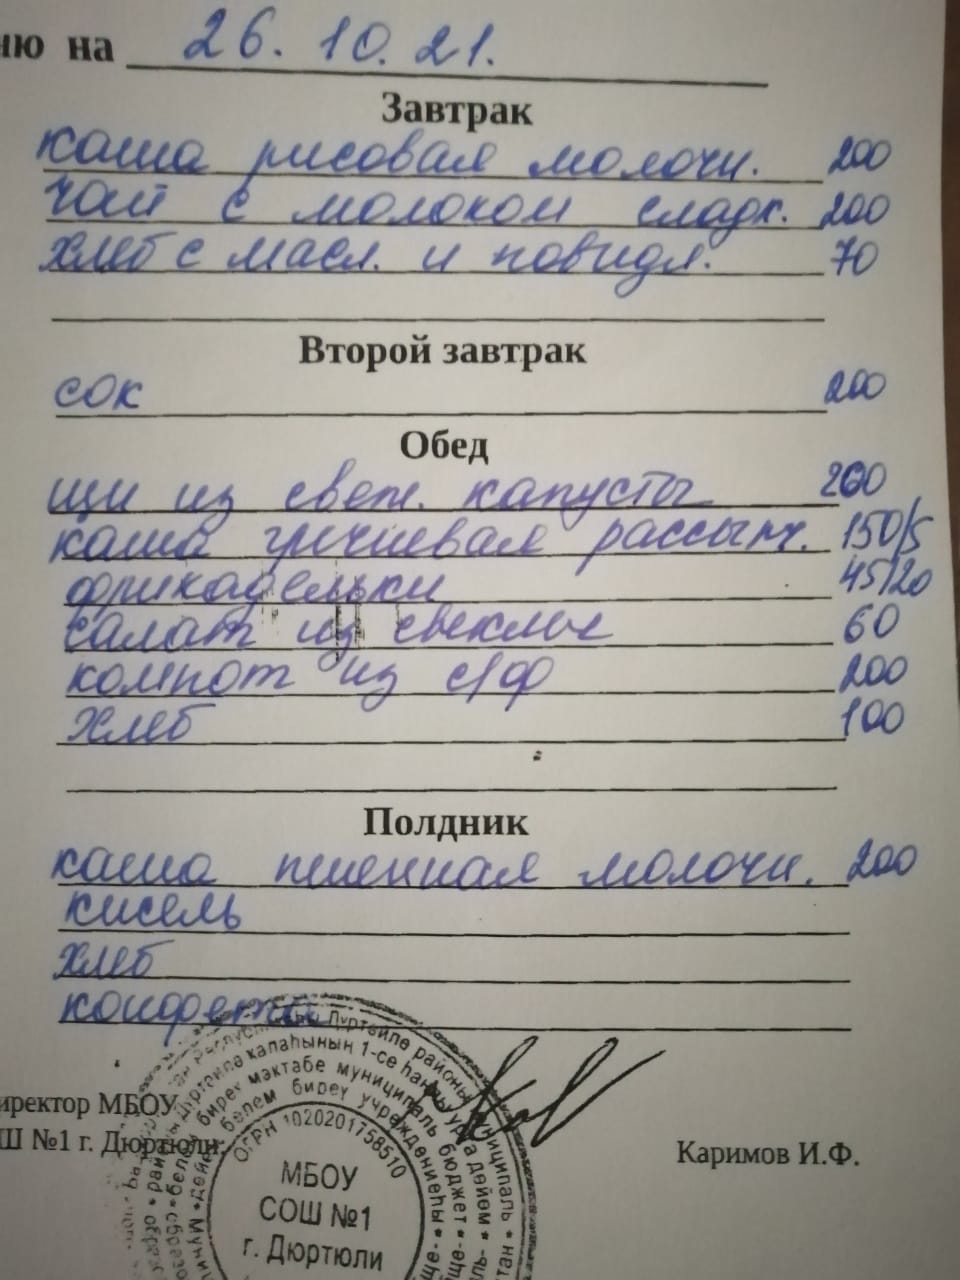 ню на 26. 10. 21.
Завтрак
каша рисовая молочн. 200
чай с молоком сладк. 200
хлеб с масл. и повидл. 70
Второй завтрак
сок 200
Обед
щи из свеж. капусты 200
каша гречневая рассыпч. 150/5
фрикадельки 45/20
салат из свеклы 60
компот из с/ф 200
хлеб 100
Полдник
каша пшенная молочн. 200
кисель
хлеб
конфета
иректор МБОУ
Ш №1 г. Дюртюли:
Каримов И.Ф.
Дүртөйлө районы муниципаль
Дүртөйлө калаһының 1-се һанлы урта дөйөм
биреү мәктәбе муниципаль бюджет
белем биреү учреждениеһы
ОГРН 1020201758510
МБОУ
СОШ №1
г. Дюртюли